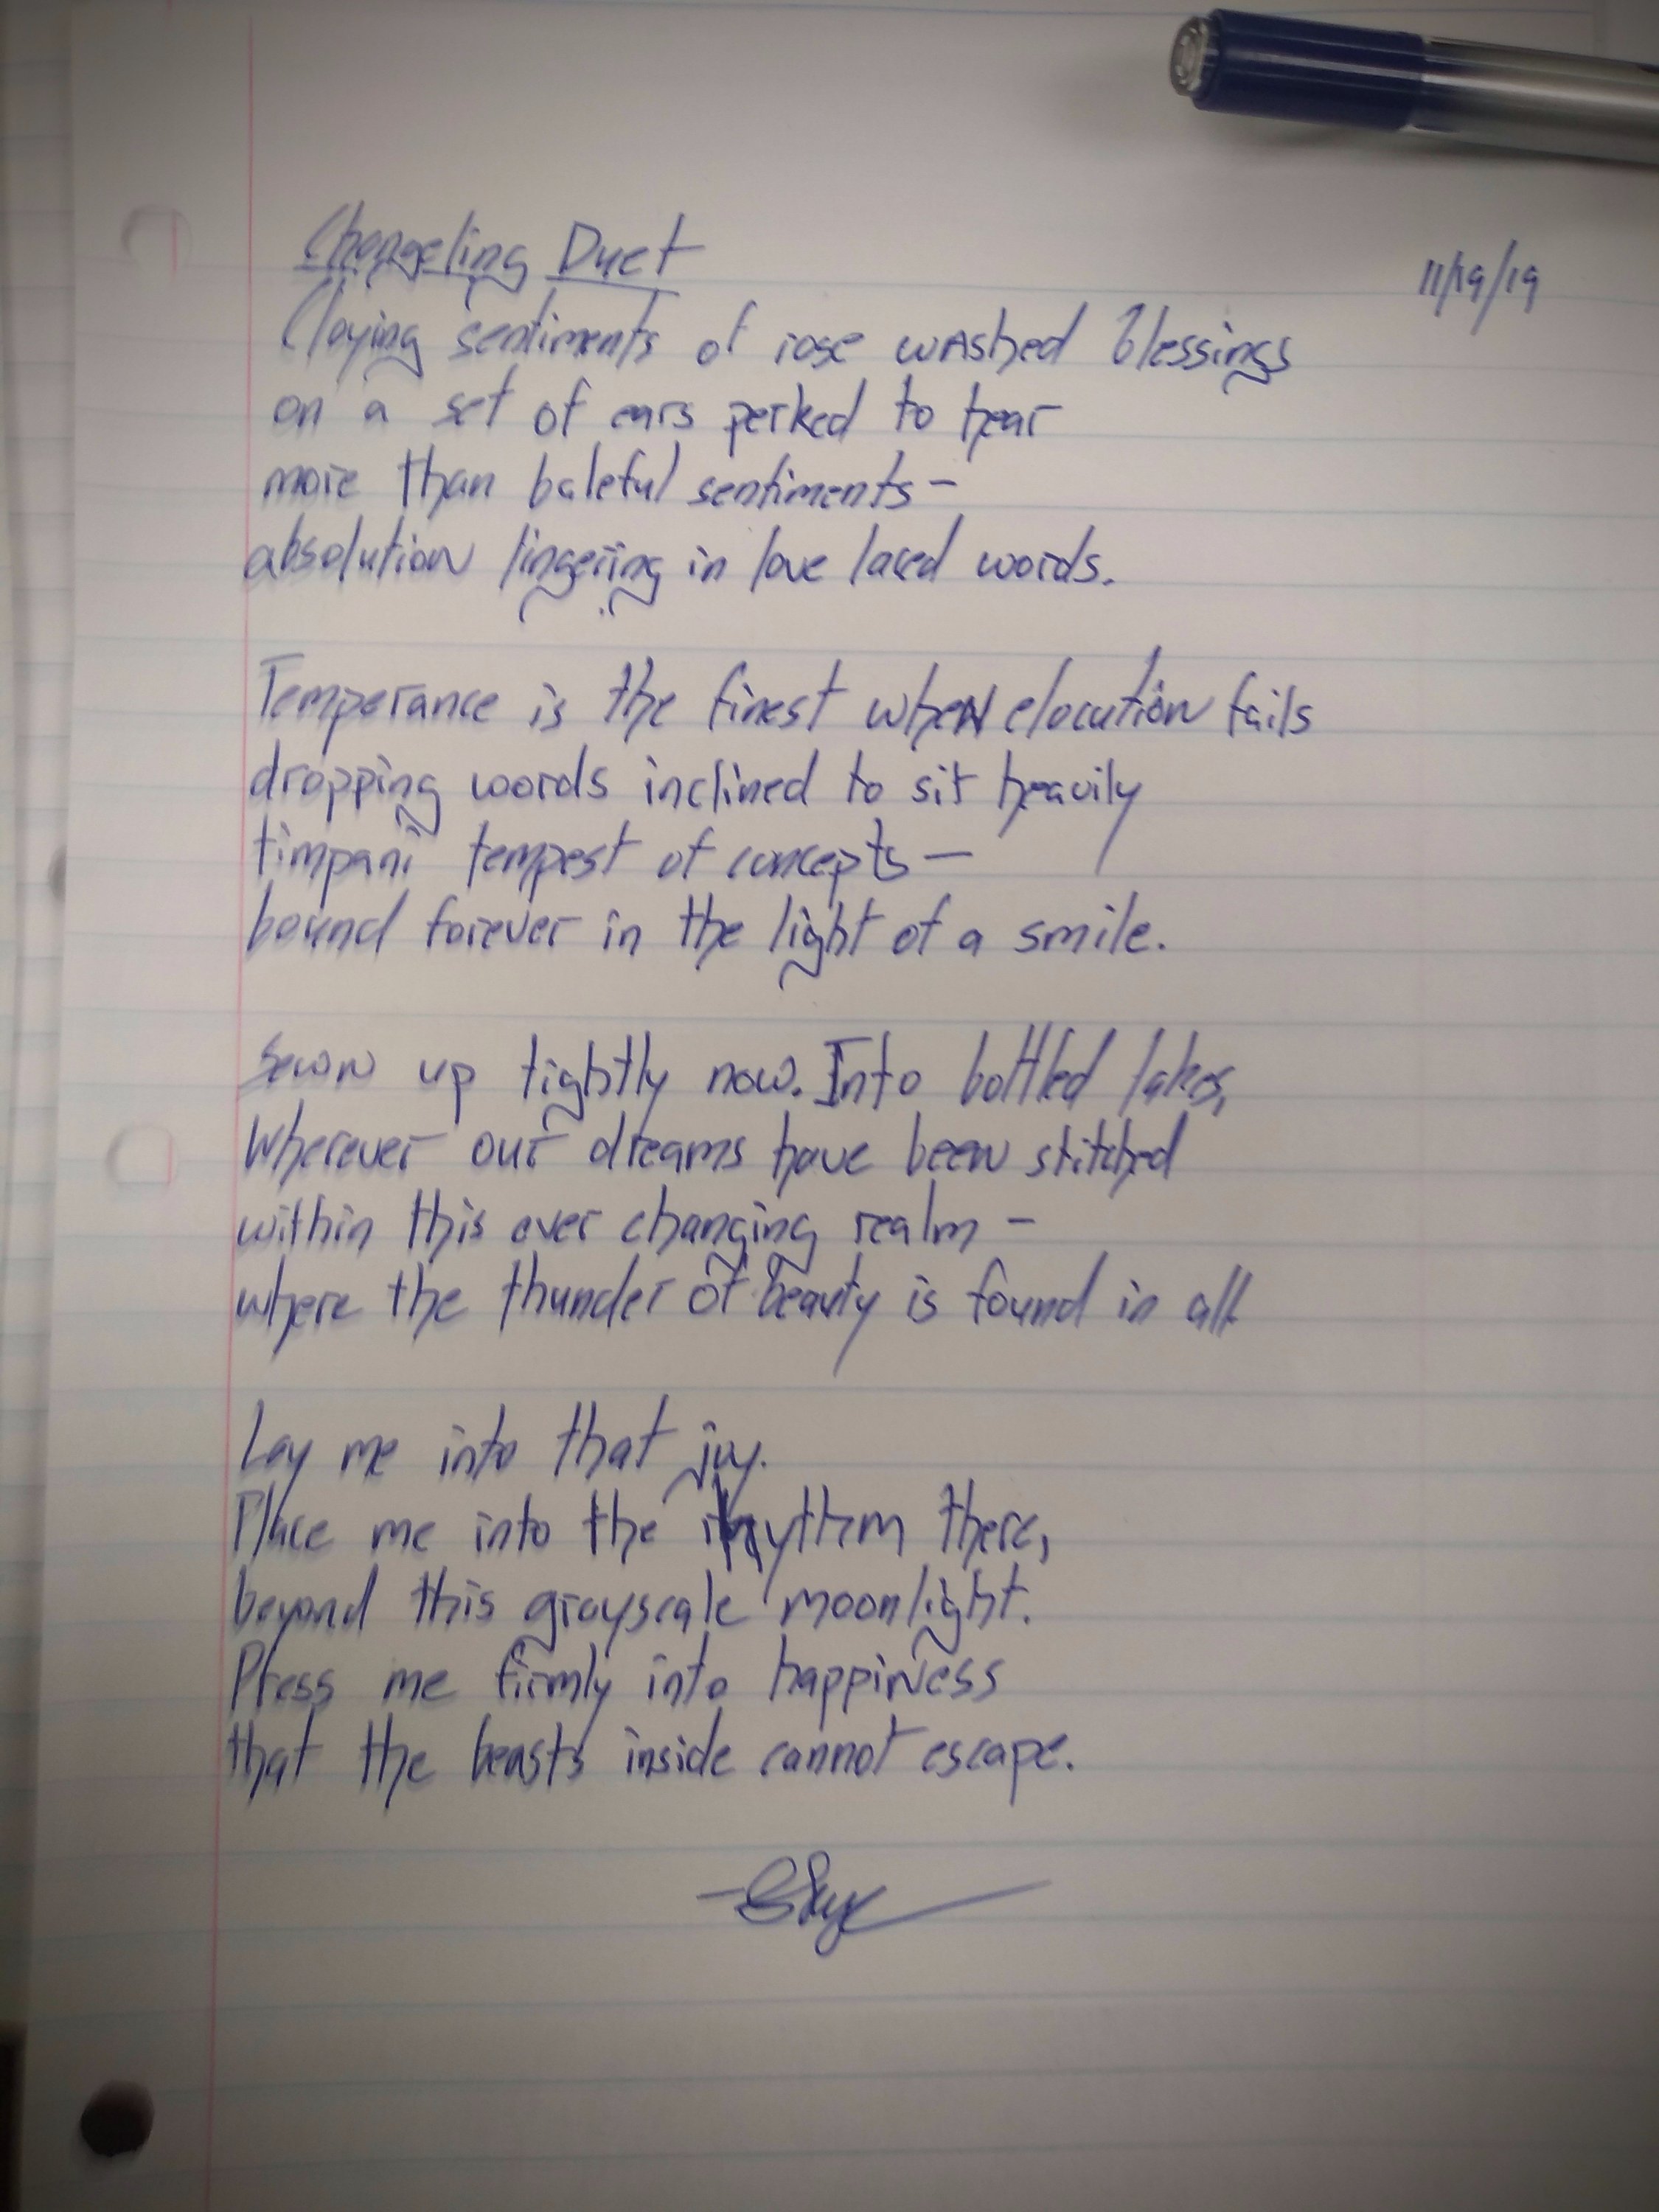 Changeling Duet
11/19/19
Cloying sentiments of rose washed blessings
on a set of ears perked to hear
more than baleful sentiments-
absolution lingering in love laced words.
Temperance is the finest when elocution fails
dropping words inclined to sit heavily
timpani tempest of concepts—
bound forever in the light of a smile.
Sewn up tightly now. Into bottled lakes,
Wherever our dreams have been stitched
within this ever changing realm-
where the thunder of beauty is found in all
Lay me into that joy.
Place me into the rhythm there,
beyond this grayscale moonlight.
Press me firmly into happiness
that the beasts inside cannot escape.